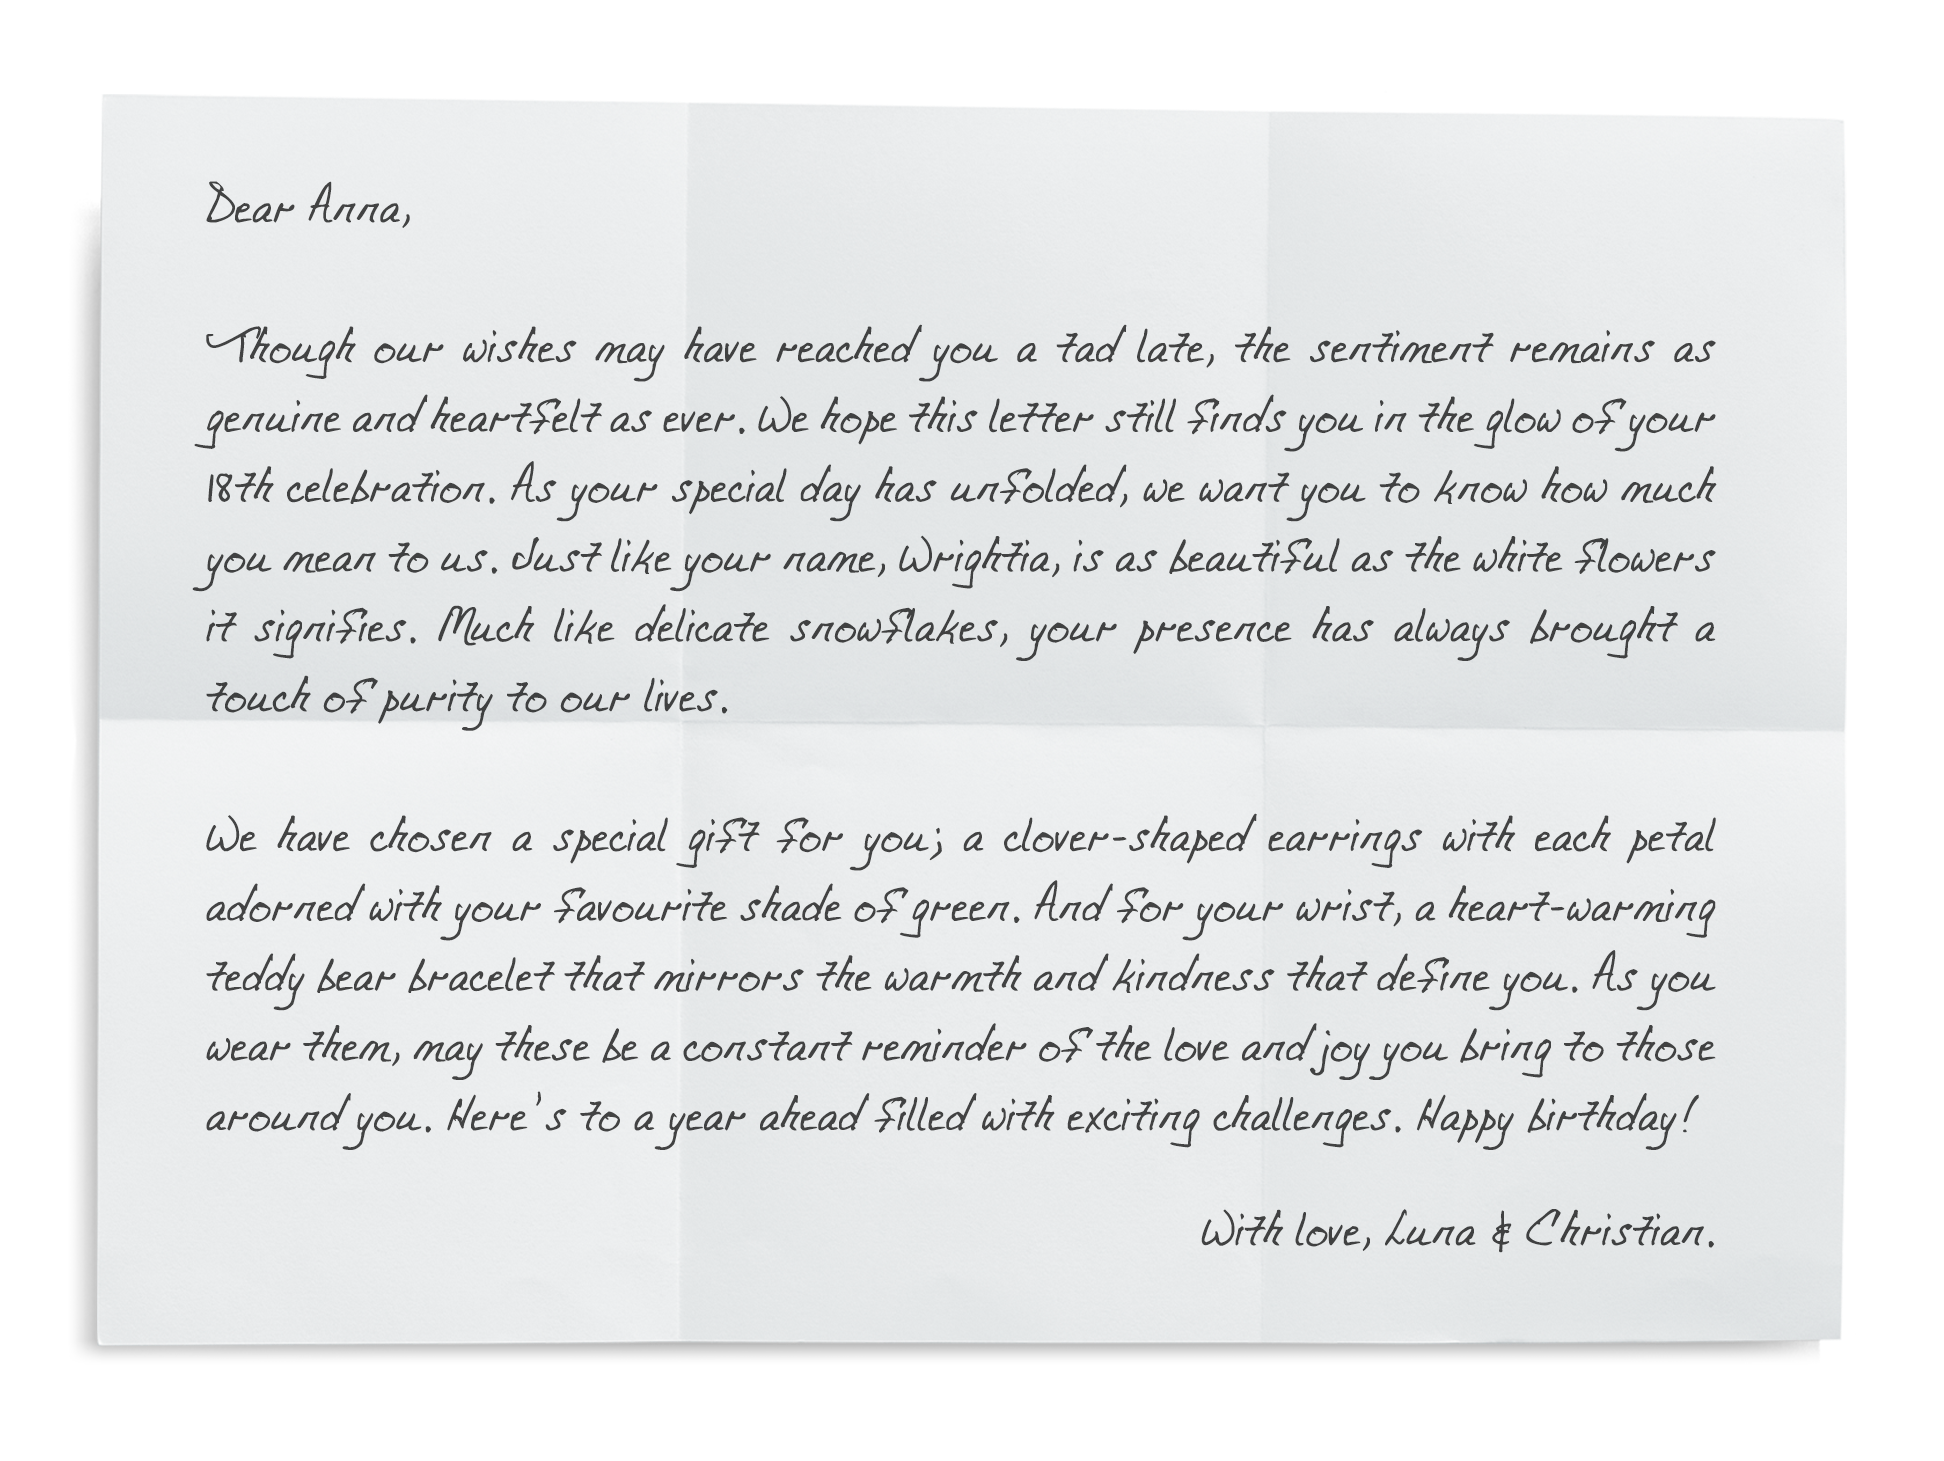 Dear Anna,
Though our wishes may have reached you a tad late, the sentiment remains as
genuine and heartfelt as ever. We hope this letter still finds you in the glow of your
18th celebration. As your special day has unfolded, we want you to know how much
you mean to us. Just like your name, Wrightia, is as beautiful as the white flowers
it signifies. Much like delicate snowflakes, your presence has always brought a
touch of purity to our lives.
We have chosen a special gift for you; a clover-shaped earrings with each petal
adorned with your favourite shade of green. And for your wrist, a heart-warming
teddy bear bracelet that mirrors the warmth and kindness that define you. As you
wear them, may these be a constant reminder of the love and joy you bring to those
around you. Here's to a year ahead filled with exciting challenges. Happy birthday!
With love, Luna & Christian.